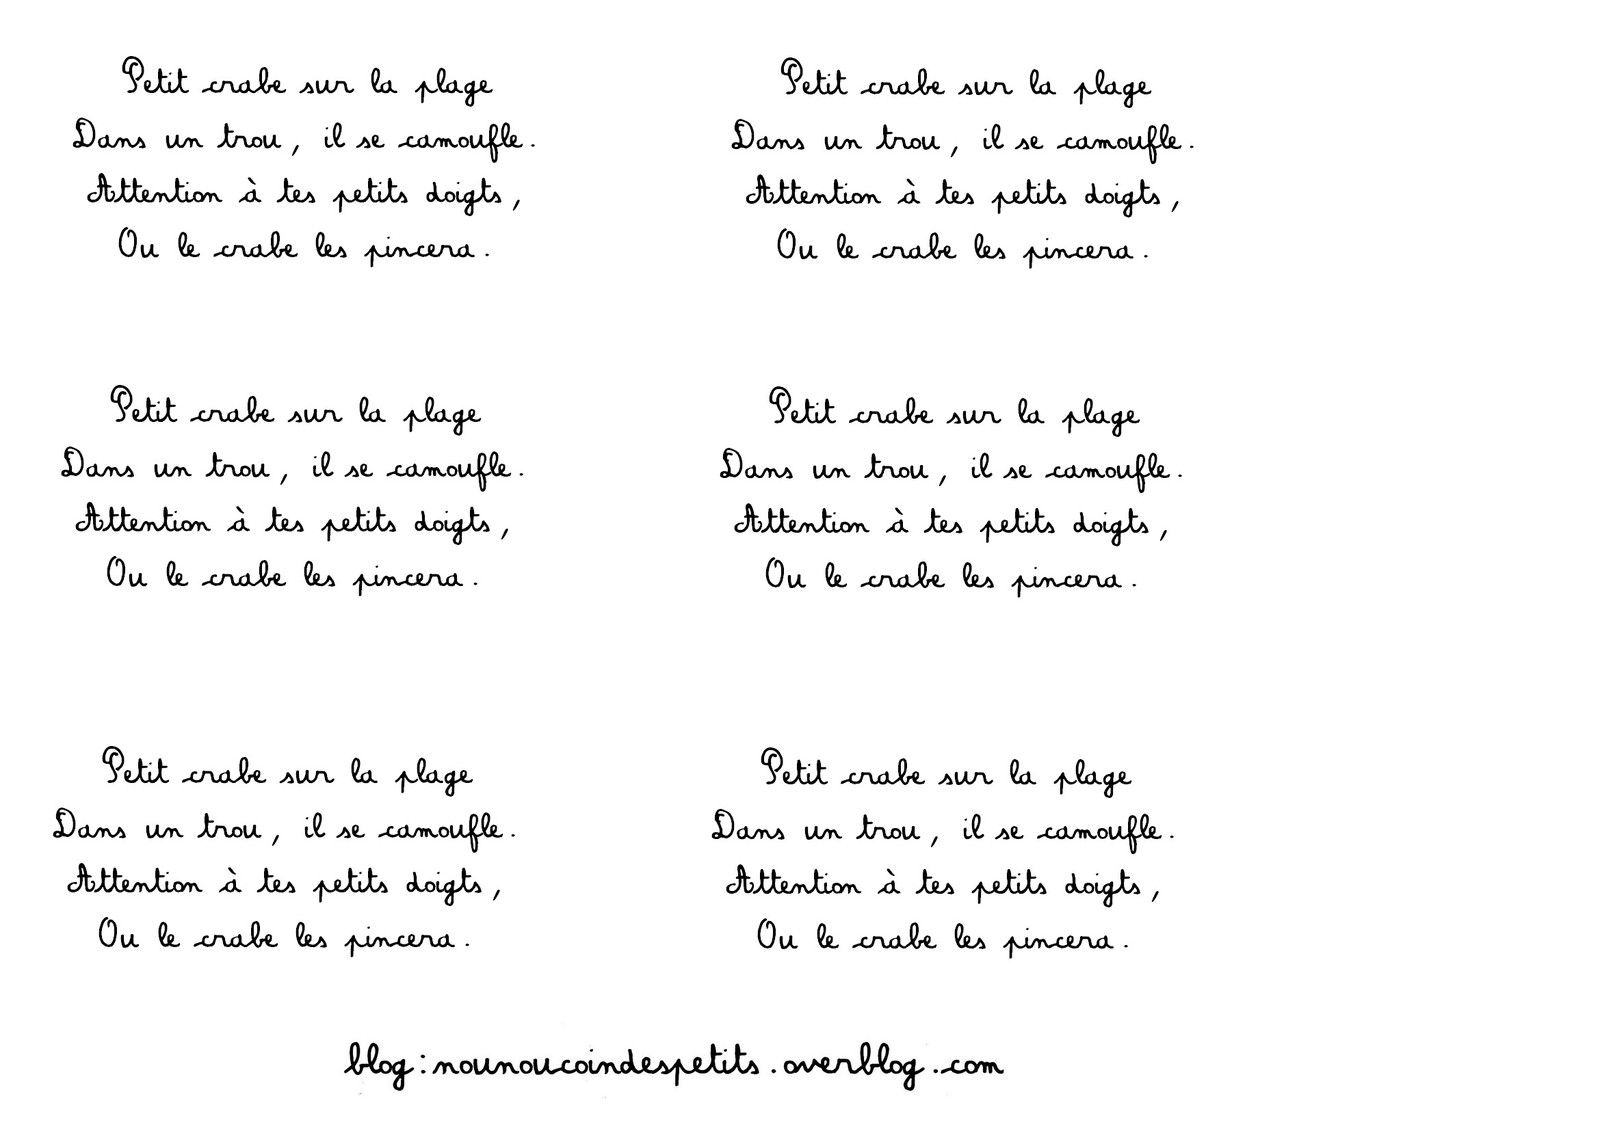 Petit crabe sur la plage
Dans un trou, il se camoufle.
Attention à tes petits doigts,
Ou le crabe les pincera.
Petit crabe sur la plage
Dans un trou, il se camoufle.
Attention à tes petits doigts,
Ou le crabe les pincera.
Petit crabe sur la plage
Dans un trou, il se camoufle.
Attention à tes petits doigts,
Ou le crabe les pincera.
Petit crabe sur la plage
Dans un trou, il se camoufle.
Attention à tes petits doigts,
Ou le crabe les pincera.
Petit crabe sur la plage
Dans un trou, il se camoufle.
Attention à tes petits doigts,
Ou le crabe les pincera.
Petit crabe sur la plage
Dans un trou, il se camoufle.
Attention à tes petits doigts,
Ou le crabe les pincera.
blog:nounoucoindespetits.overblog.com